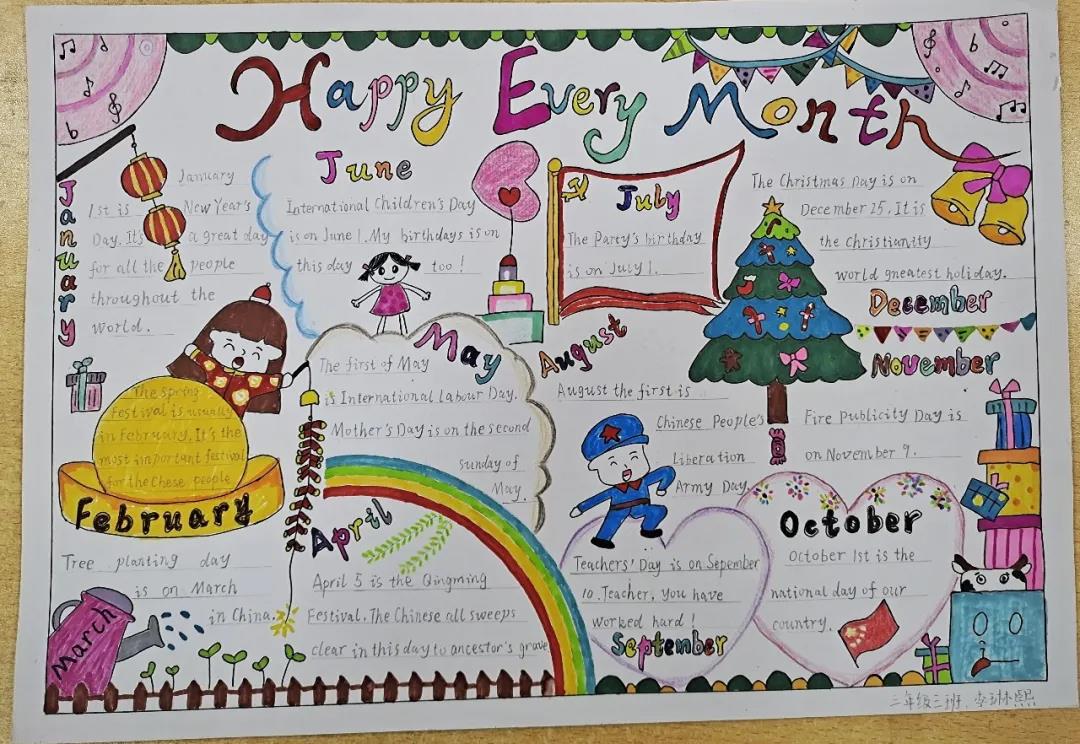 Happy Every Month
January
January
1st is New Year's
Day. It's a great day
for all the people
throughout the
world.
June
International Children's Day
is on June 1. My birthdays is on
this day too!
July
The Party's birthday
is on July 1.
The Christmas Day is on
December 25. It is
the Christianity
world gneatest holiday.
December
November
Fire publicity Day is
on November 9.
The Spring
Festival is usually
in February. It's the
most important festival
for the Chese people
February
May
The first of May
is International Labour Day.
Mother's Day is on the second
sunday of
May.
August
August the first is
Chinese People's
Liberation
Army Day.
Tree planting day
is on March
in China.
March
April
April 5 is the Qingming
Festival. The Chinese all sweeps
clear in this day to ancestor's grave
Teachers' Day is on Sepember
10. Teacher, you have
worked hard!
September
October
October 1st is the
national day of our
country.
三年级三班, 李琳熙